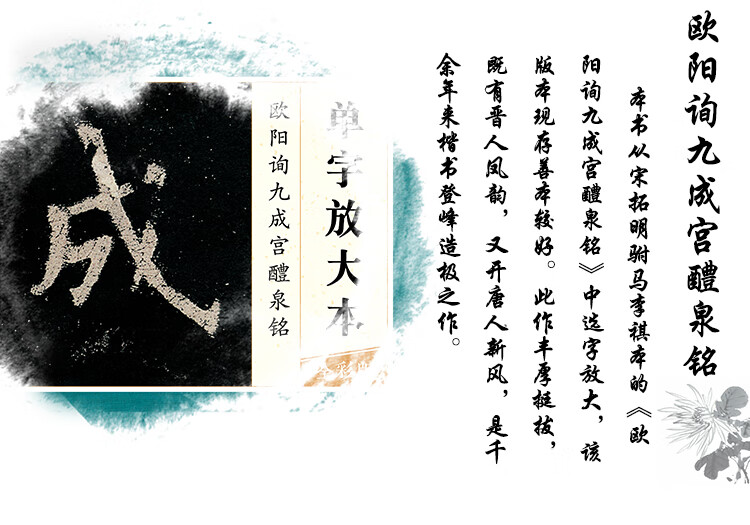 欧阳询九成宫醴泉铭
本书从宋拓明驸马李祺本的《欧
阳询九成宫醴泉铭》中选字放大，该
版本现存善本较好。此作丰厚挺拔，
既有晋人风韵，又开唐人新风，是千
余年来楷书登峰造极之作。
单字放大本
欧阳询九成宫醴泉铭
成